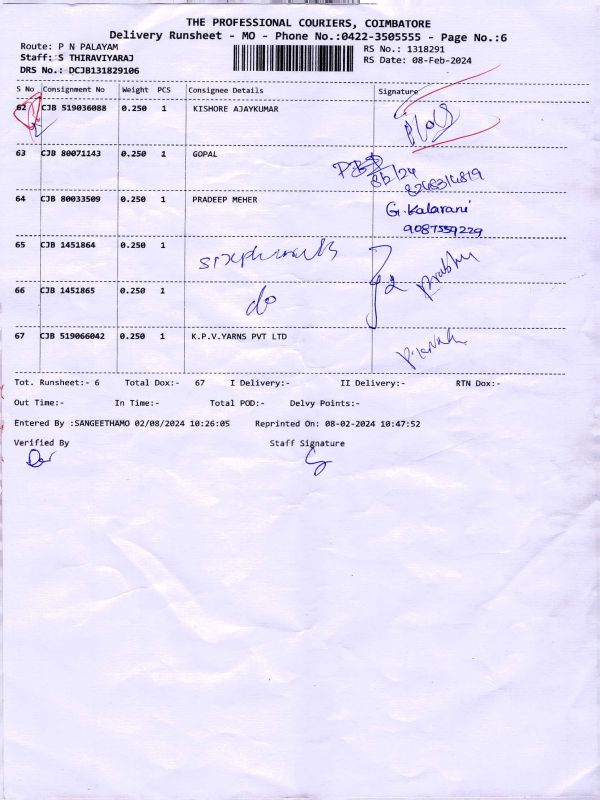 THE PROFESSIONAL COURIERS, COIMBATORE
Delivery Runsheet - MO - Phone No.:0422-3505555 - Page No.:6
Route: P N PALAYAM RS No.: 1318291
Staff: S THIRAVIYARAJ RS Date: 08-Feb-2024
DRS No.: DCJB131829106
S No Consignment No Weight PCS Consignee Details Signature
62 CJB 519036088 0.250 1 KISHORE AJAYKUMAR
63 CJB 80071143 0.250 1 GOPAL
8/2/24
64 CJB 80033509 0.250 1 PRADEEP MEHER G. Kalarani
9087559229
65 CJB 1451864 0.250 1 Prabhu
66 CJB 1451865 0.250 1 do
67 CJB 519066042 0.250 1 K.P.V.YARNS PVT LTD
Tot. Runsheet:- 6 Total Dox:- 67 I Delivery:- II Delivery:- RTN Dox:-
Out Time:- In Time:- Total POD:- Delvy Points:-
Entered By :SANGEETHAMO 02/08/2024 10:26:05 Reprinted On: 08-02-2024 10:47:52
Verified By Staff Signature